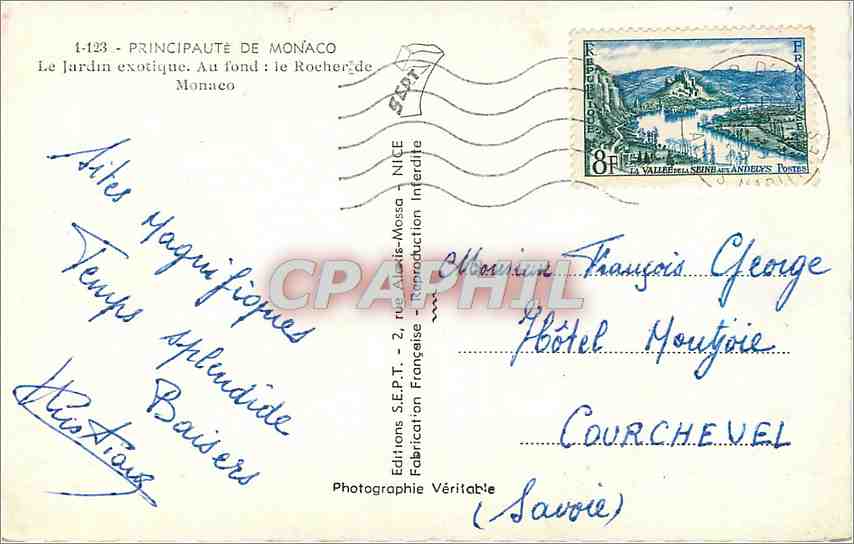 1-123 - PRINCIPAUTÉ DE MONACO
Le Jardin exotique. Au fond : le Rocher de
Monaco
S.E.P.T.
REPUBLIQUE
FRANÇAISE
8F
LA VALLÉE DE LA SEINE AUX ANDELYS POSTES
Sites Magnifiques
Temps splendide
Baisers
Editions S.E.P.T. - 2, rue Alexis-Mossa - NICE
Fabrication Française - Reproduction Interdite
CPAPHIL
Monsieur François George
Hôtel Montjoie
COURCHEVEL
(Savoie)
Photographie Véritable